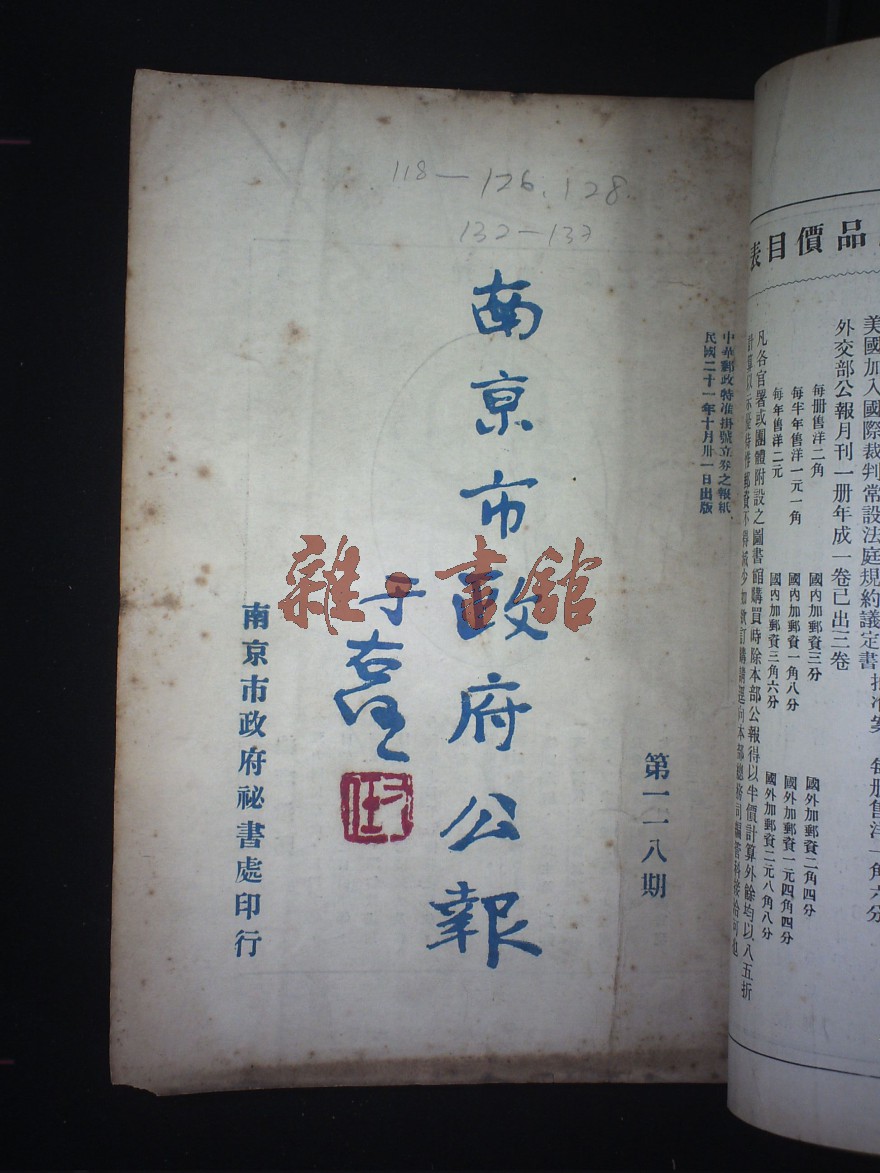 118—126.128
132—137
南京市政府公報
于右任
中華郵政特准掛號立券之報紙
民國二十一年十月卅一日出版
第一一八期
南京市政府祕書處印行
雜·書館
品價目表
美國加入國際裁判常設法庭規約議定書
每册售洋一角六分
外交部公報月刊一册年成一卷已出三卷
每册售洋二角 國內加郵資三分 國外加郵資二角四分
每半年售洋一元一角 國內加郵資一角八分 國外加郵資一元四角四分
每年售洋二元 國內加郵資三角六分 國外加郵資二元八角八分
凡各官署或團體附設之圖書館購買時除本部公報得以半價計算外餘均以八五折